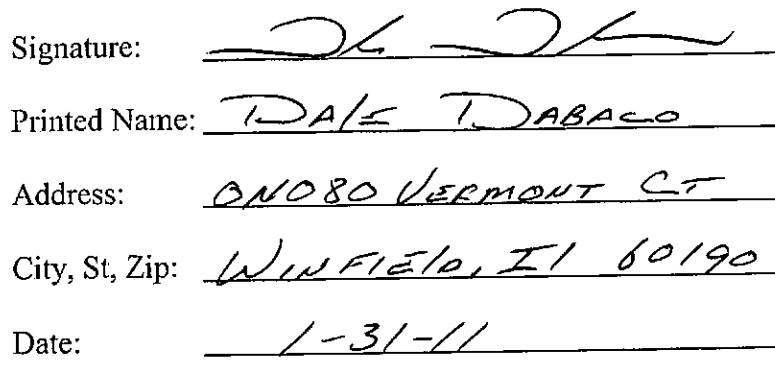 Signature:
Printed Name: DAlE DABACO
Address: 0N080 VERMONT CT
City, St, Zip: WINFIElD, Il 60190
Date: 1-31-11